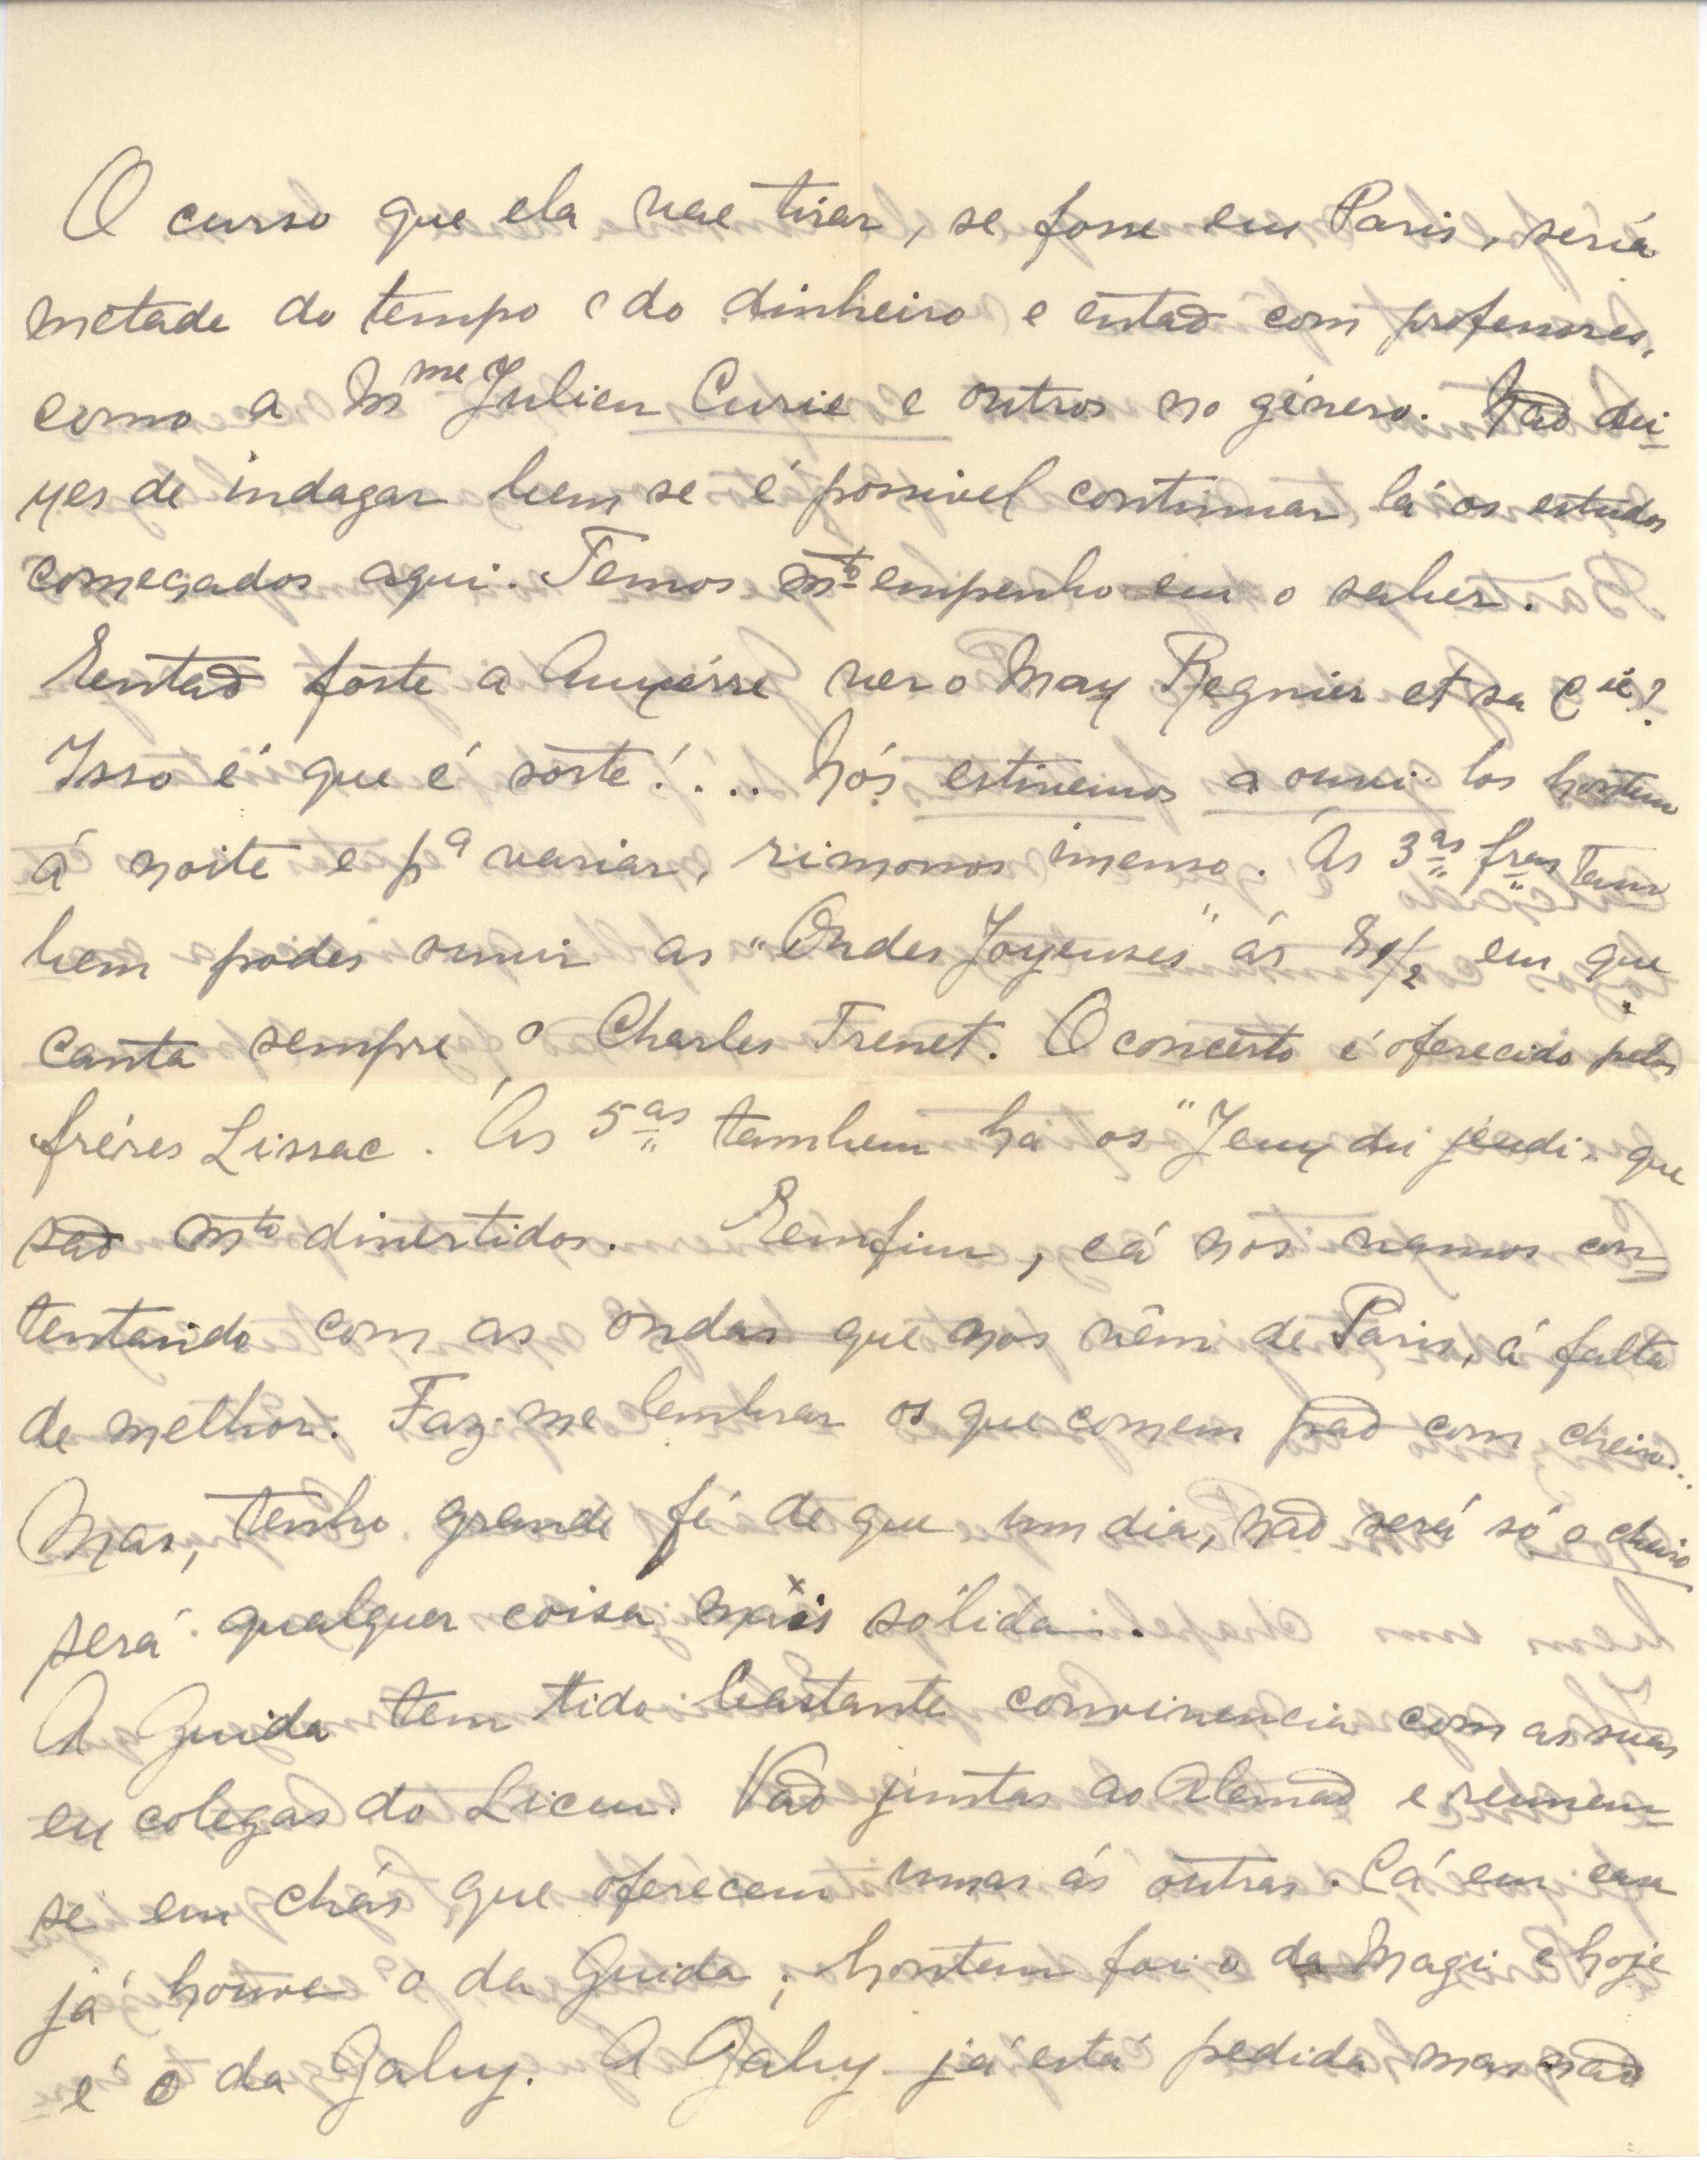 O curso que ela vae tirar, se fosse em Paris, seria
metade do tempo e do dinheiro e entaõ com professores,
como a Mme Julien Curie e outros no género. Naõ dei-
xes de indagar bem se é possivel continuar lá os estudos
começados aqui. Temos mto empenho em o saber.
E entaõ foste a Auxérre ver o Max Regnier et sa Cie?
Isso é que é sorte!... Nós estivemos a ouvi-los hontem
á noite e pª variar, rimonos imenso. Ás 3as fras tam
bem podes ouvir as "Ondes Joyeuses" ás 8 1/2 em que
canta sempre o Charles Trenet. O concerto é oferecido pelos
fréres Lissac. Ás 5as tambem ha os "Jeux du jeudi" que
saõ mto divertidos. E emfim, cá nos vamos con-
tentando com as ondas que nos vêm de Paris, á falta
de melhor. Faz-me lembrar os que comem paõ com cheiro...
Mas, tenho grande fé de que um dia, naõ será só o cheiro
será qualquer coisa mais sólida.
A Guida tem tido bastante convivencia com as suas
ex colegas do Liceu. Vaõ juntas ao Alemaõ e reunem-
se em chás que oferecem umas ás outras. Cá em casa
já houve o da Guida; hontem foi o da Magi e hoje
é o da Gaby. A Gaby já está pedida mas naõ